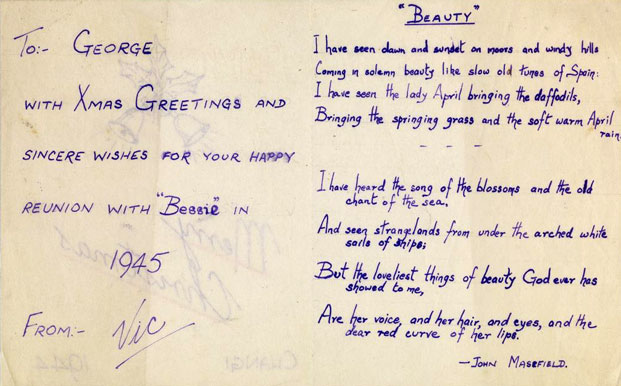 To:- GEORGE
WITH XMAS GREETINGS AND
SINCERE WISHES FOR YOUR HAPPY
REUNION WITH "Bessie" IN
1945
FROM:- Vic
"BEAUTY"
I have seen dawn and sunset on moors and windy hills
Coming in solemn beauty like slow old tunes of Spain:
I have seen the lady April bringing the daffodils,
Bringing the springing grass and the soft warm April
rain.
- - -
I have heard the song of the blossoms and the old
chant of the sea,
And seen strangelands from under the arched white
sails of ships;
But the loveliest things of beauty God ever has
showed to me,
Are her voice, and her hair, and eyes, and the
dear red curve of her lips.
—JOHN MASEFIELD.